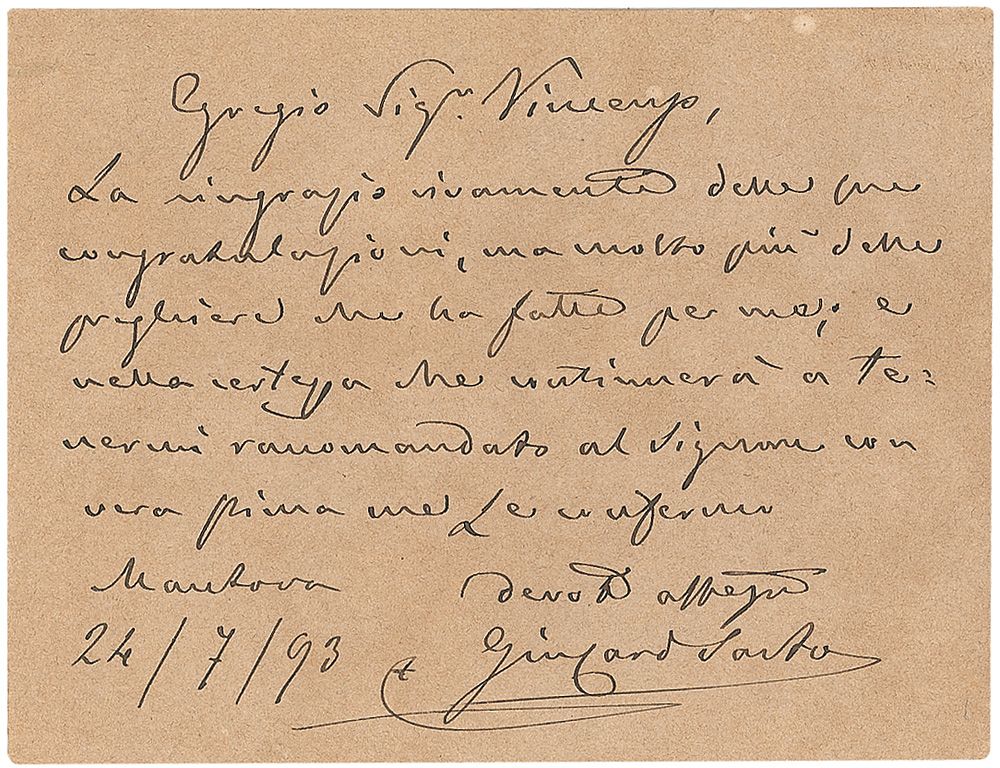 Egregio Sigr. Vincenzo,
La ringrazio vivamente delle sue
congratulazioni, ma molto più delle
preghiere che ha fatto per me; e
nella certezza che continuerà a te=
nermi raccomandato al Signore con
vera stima me Le confermo
Mantova devotо affezmo
24/7/93 + Gius Card Sarto